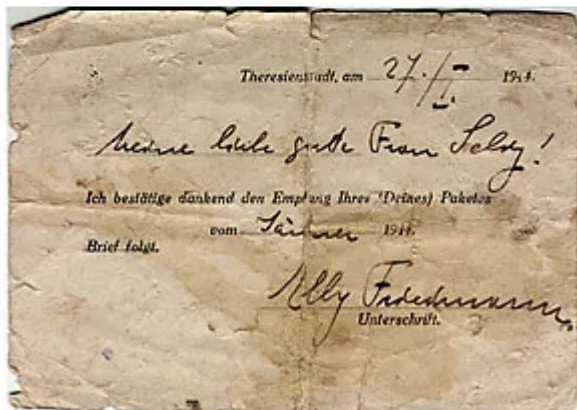 Theresienstadt, am 27./I. 1944.
Meine liebe gute Frau Selvy!
Ich bestätige dankend den Empfang Ihres (Deines) Paketes
vom Jänner 1944.
Brief folgt.
Elly Friedmann.
Unterschrift.